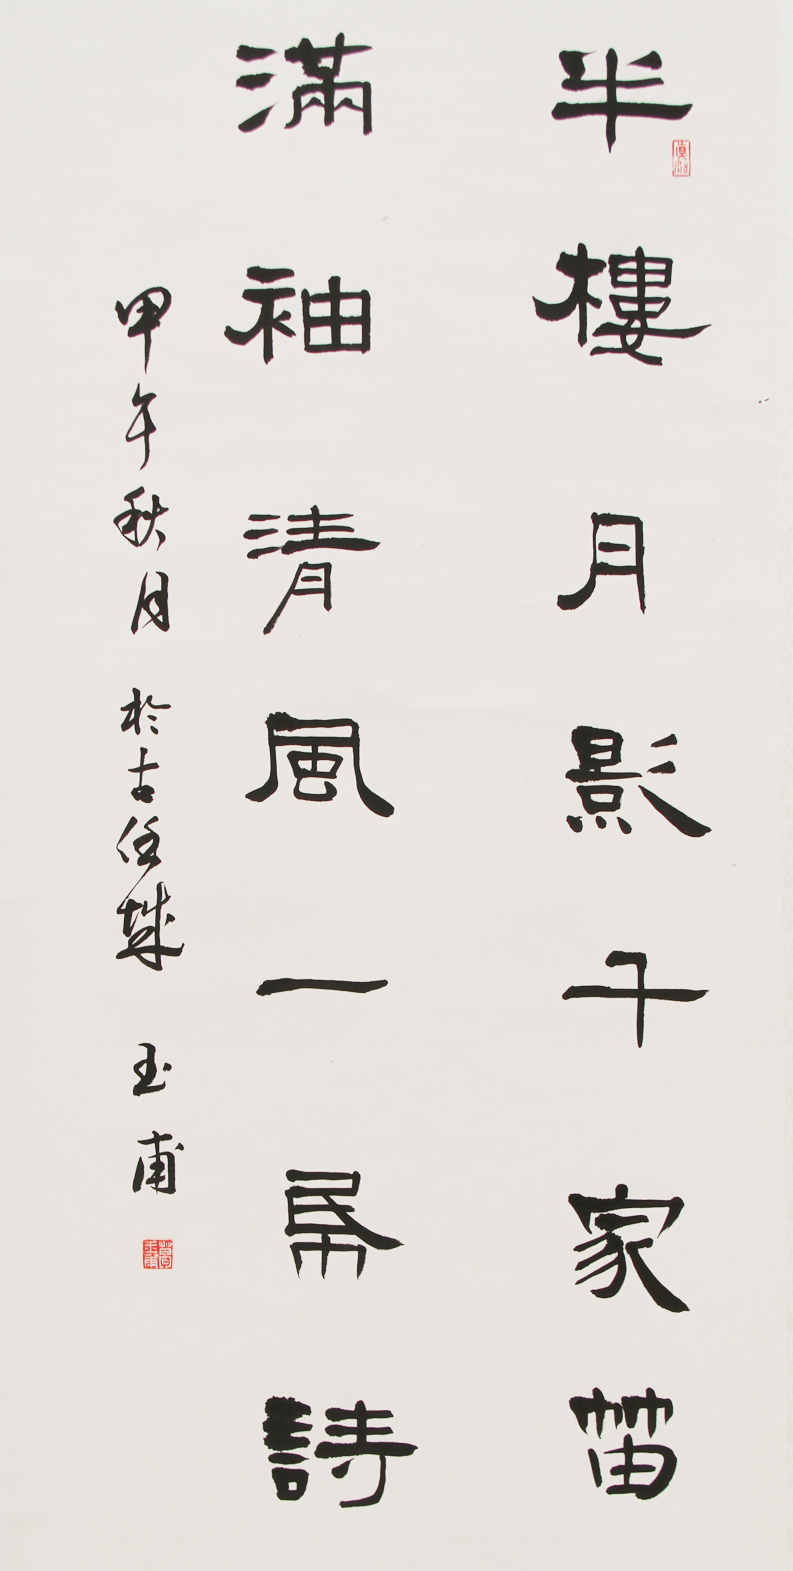 半樓月影千家笛
滿袖清風一帋詩
甲午秋月 於古任城 玉甫